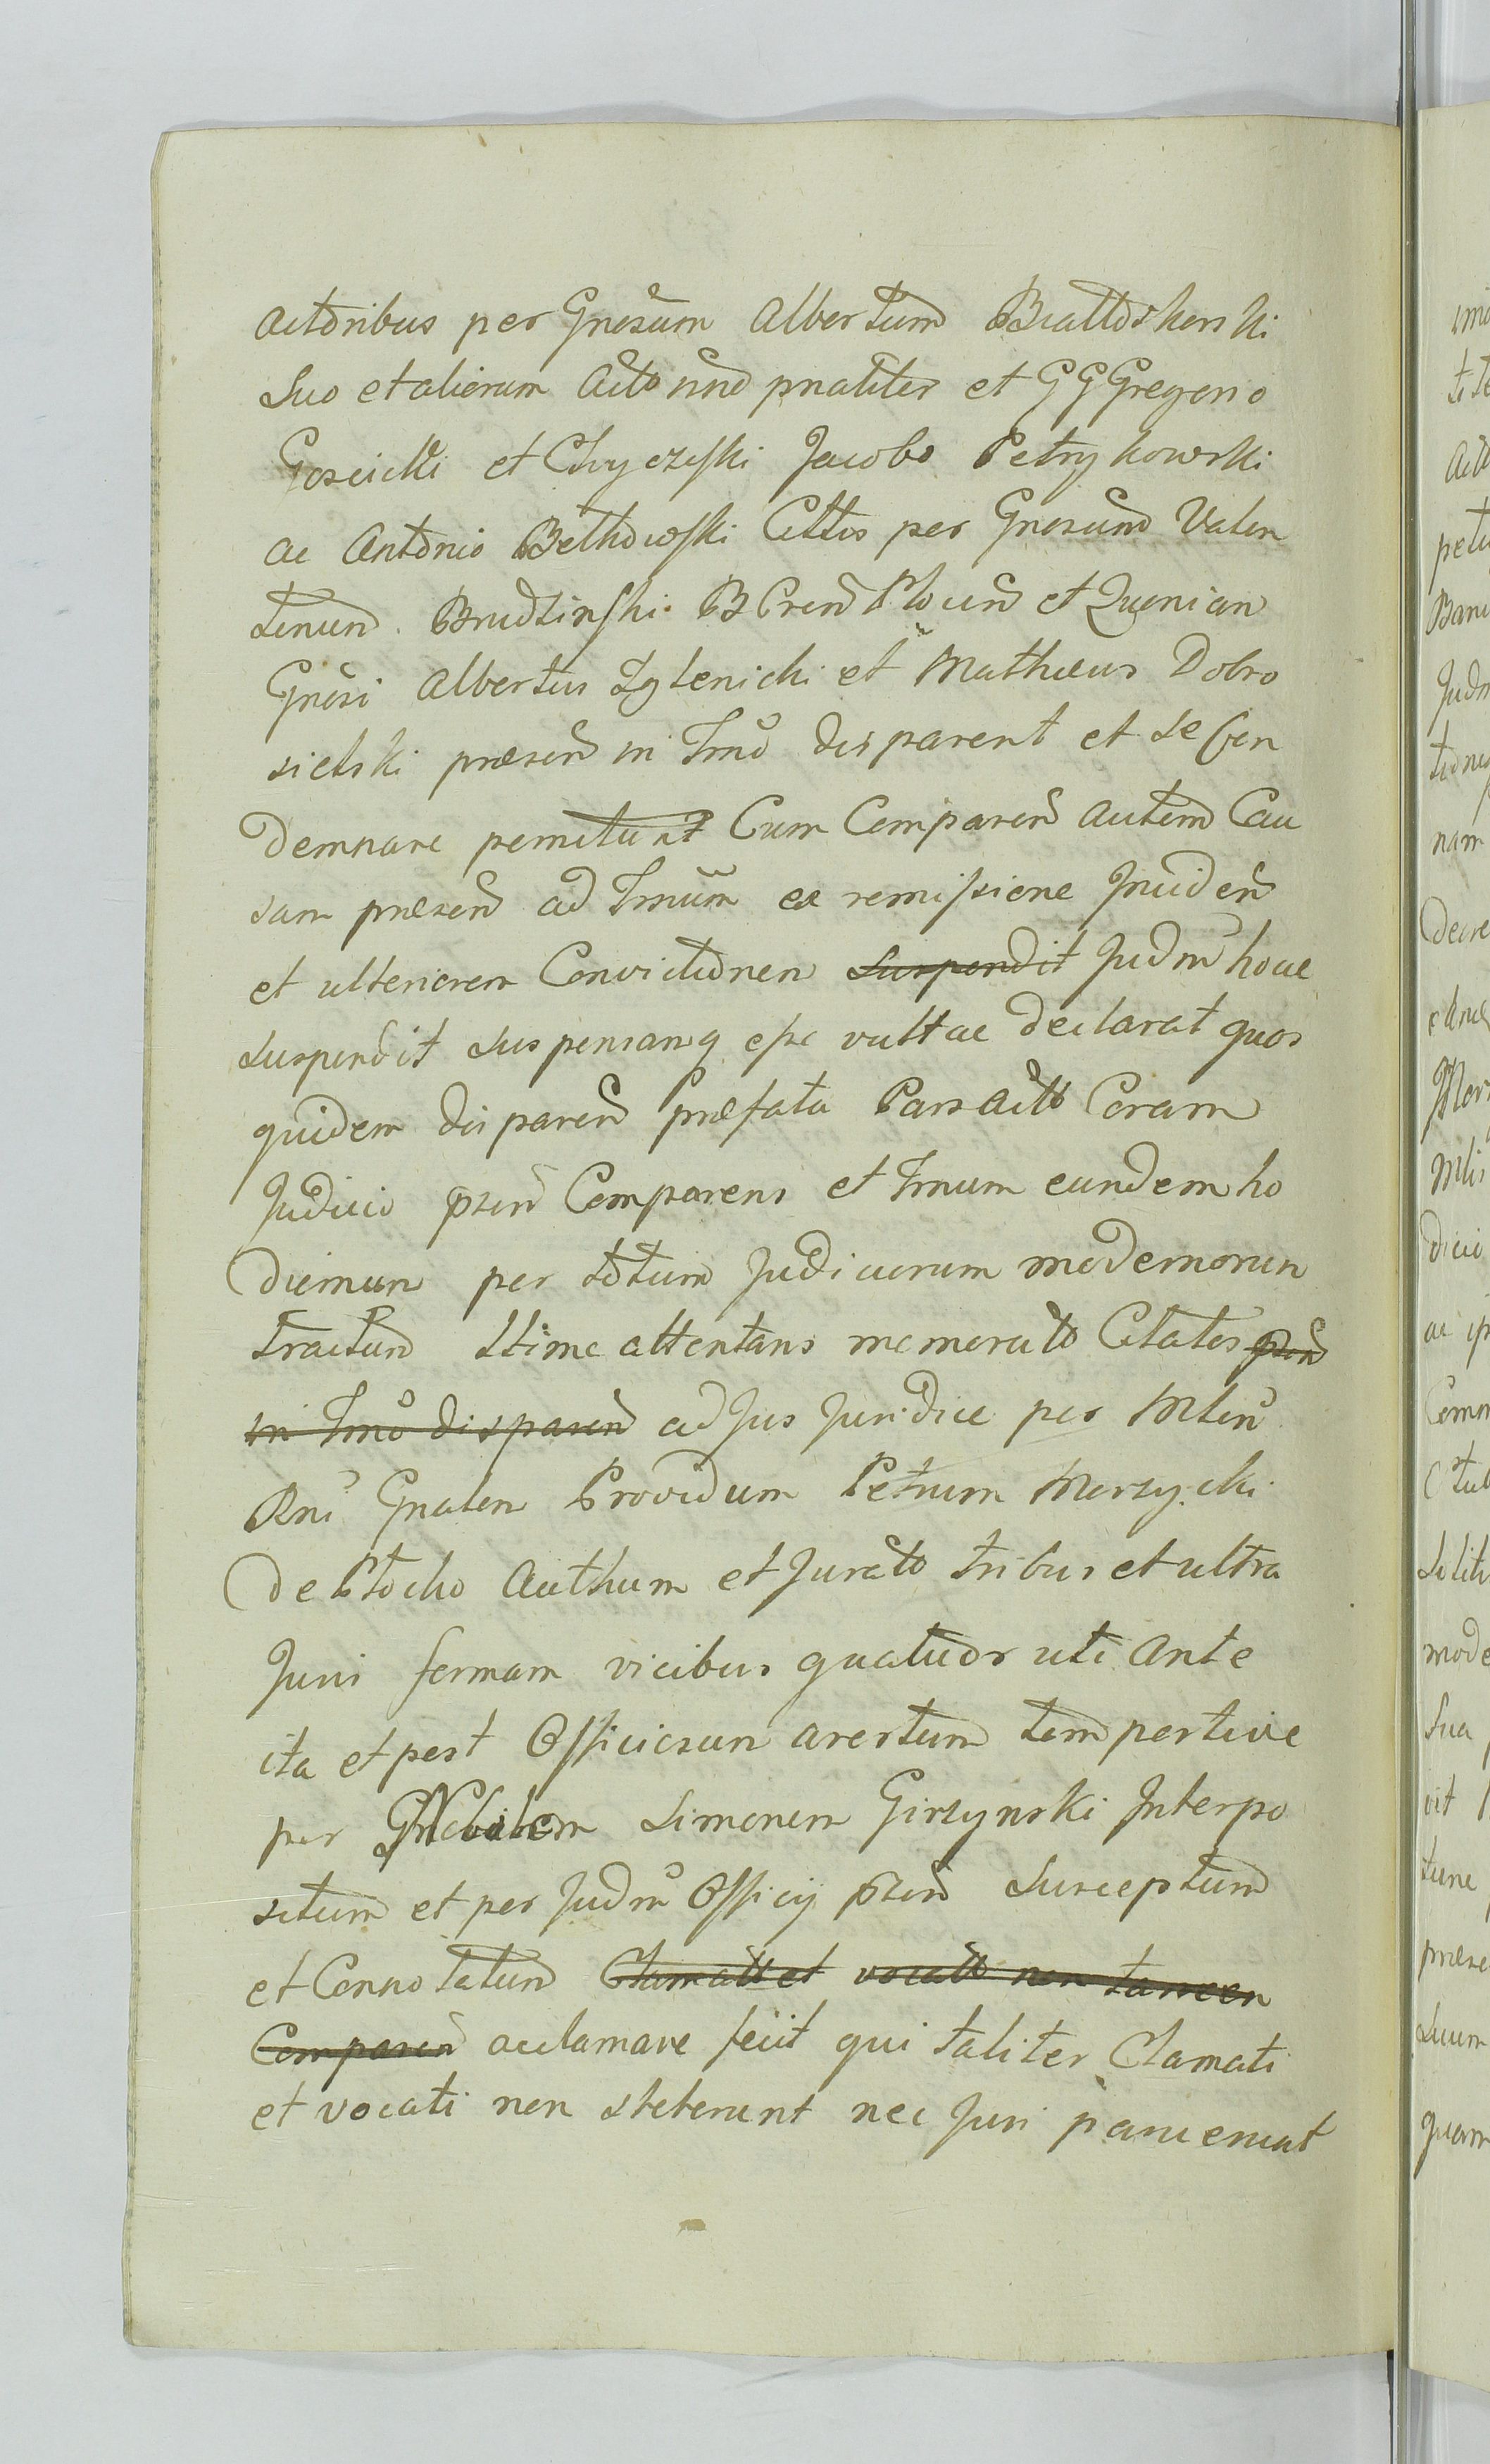 Actoribus per Gnosum Albertum Brattoszewski
Suo et aliorum Actorum pnaliter et GG Gregorio
Goscicki et Chyczeski Jacobo Petrykowski
ac Antonio Bethowski Cittis per Gnosum Valen
tinum Brudzinski BCren Plocen et
Gnosi Albertus Zglenicki et Mathaeus Dobro
sielski praesen in Trno disparent et se Con
demnare permittunt Cum Comparen autem Cau
sam praesen ad Trnum ex remissione Inciden
et ulteriorem Convictionem suspendit Judm hocce
suspendit suspensamq esse vult ac declarat quos
quidem disparen praefata Pars Acto Coram
Judicio pnsen Comparens et Trnum eundem ho
diernum per totum Judiciorum modernorum
tractum ttime attentans memorato Citatos pnsen
in Trno disparen ad Jus Juridice per Mlem
Rni Gnalem Providum Petrum Marzycki
de Plocko Authum et Jurato tribus et ultra
Juris formam vicibus quatuor uti Ante
ita et post Officiosum arestum tempestive
per Nobilem Simonem Girzynski Interpo
situm et per Judm Officij pnsen Susceptum
et Connotatum Clamatto et vocatto non tamen
Comparen acclamare fecit qui taliter Clamati
et vocati non steterunt nec Juri paruerunt